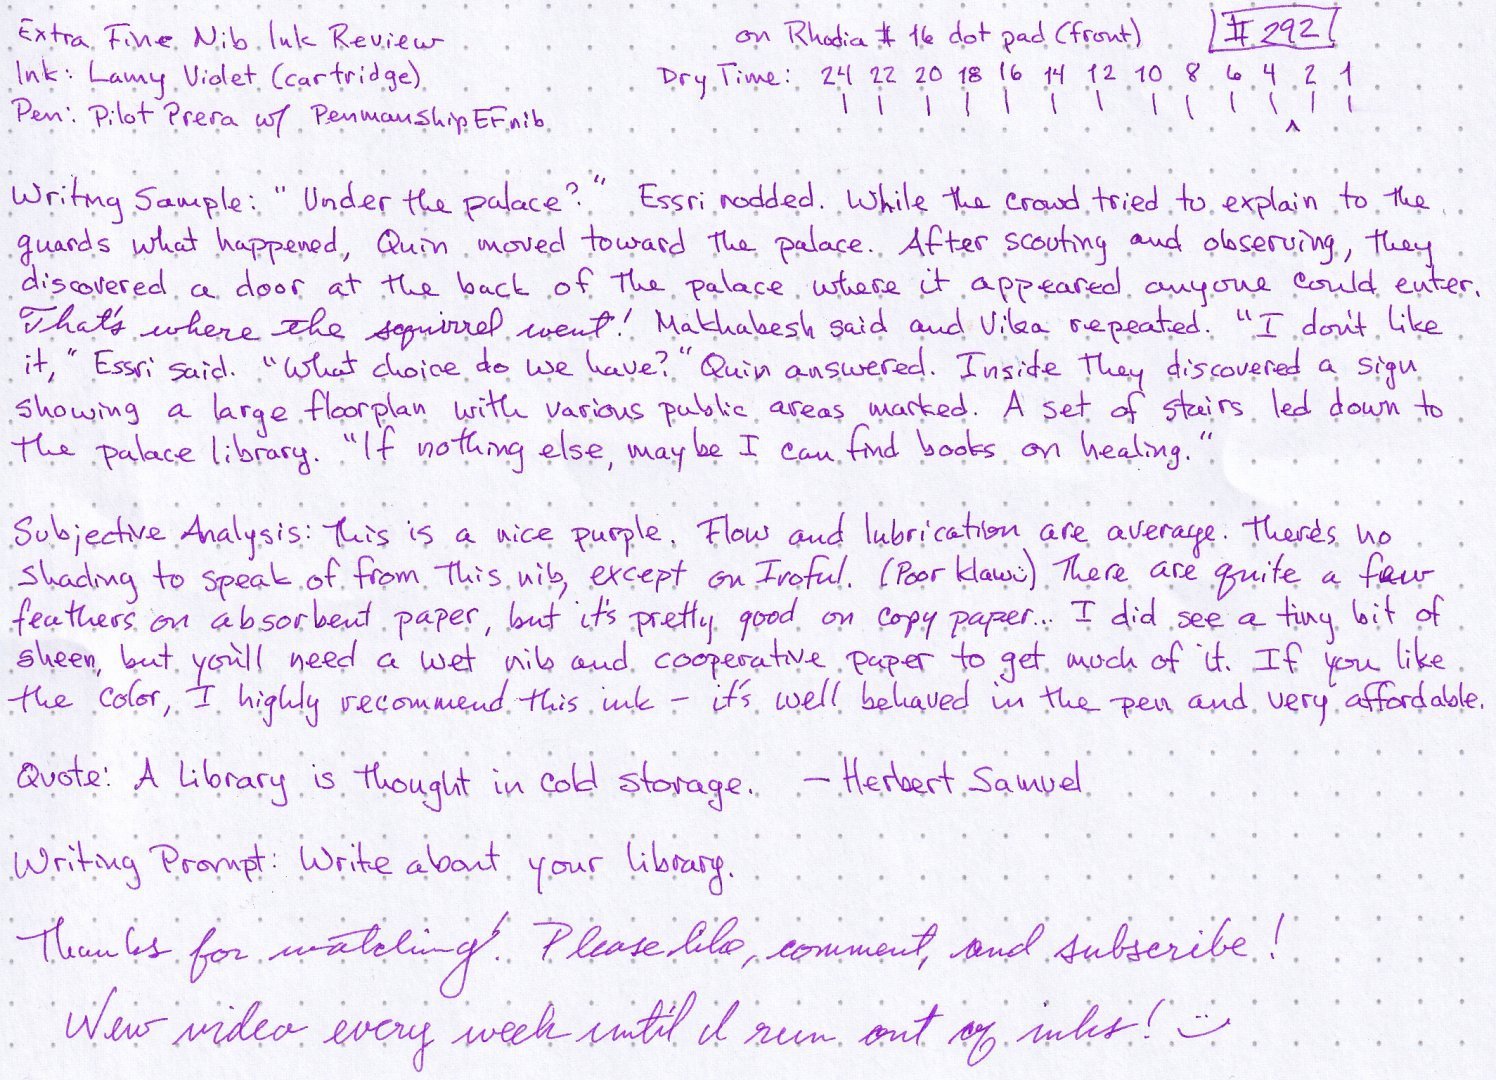 Extra Fine Nib Ink Review
on Rhodia # 16 dot pad (front)
#292
Ink: Lamy Violet (cartridge)
Dry Time: 24 22 20 18 16 14 12 10 8 6 4 2 1
Pen: Pilot Prera w/ Penmanship EF nib
Writing Sample: "Under the palace?" Essri nodded. While the crowd tried to explain to the
guards what happened, Quin moved toward the palace. After scouting and observing, they
discovered a door at the back of the palace where it appeared anyone could enter.
That's where the squirrel went! Makhabesh said and Vika repeated. "I don't like
it," Essri said. "What choice do we have?" Quin answered. Inside they discovered a sign
showing a large floorplan with various public areas marked. A set of stairs led down to
the palace library. "If nothing else, maybe I can find books on healing."
Subjective Analysis: This is a nice purple. Flow and lubrication are average. There's no
shading to speak of from this nib, except on Iroful. (Poor klaw :) There are quite a few
feathers on absorbent paper, but it's pretty good on copy paper... I did see a tiny bit of
sheen, but you'll need a wet nib and cooperative paper to get much of it. If you like
the color, I highly recommend this ink – it's well behaved in the pen and very affordable.
Quote: A library is thought in cold storage. – Herbert Samuel
Writing Prompt: Write about your library.
Thanks for watching! Please like, comment, and subscribe!
New video every week until I run out of inks! :)